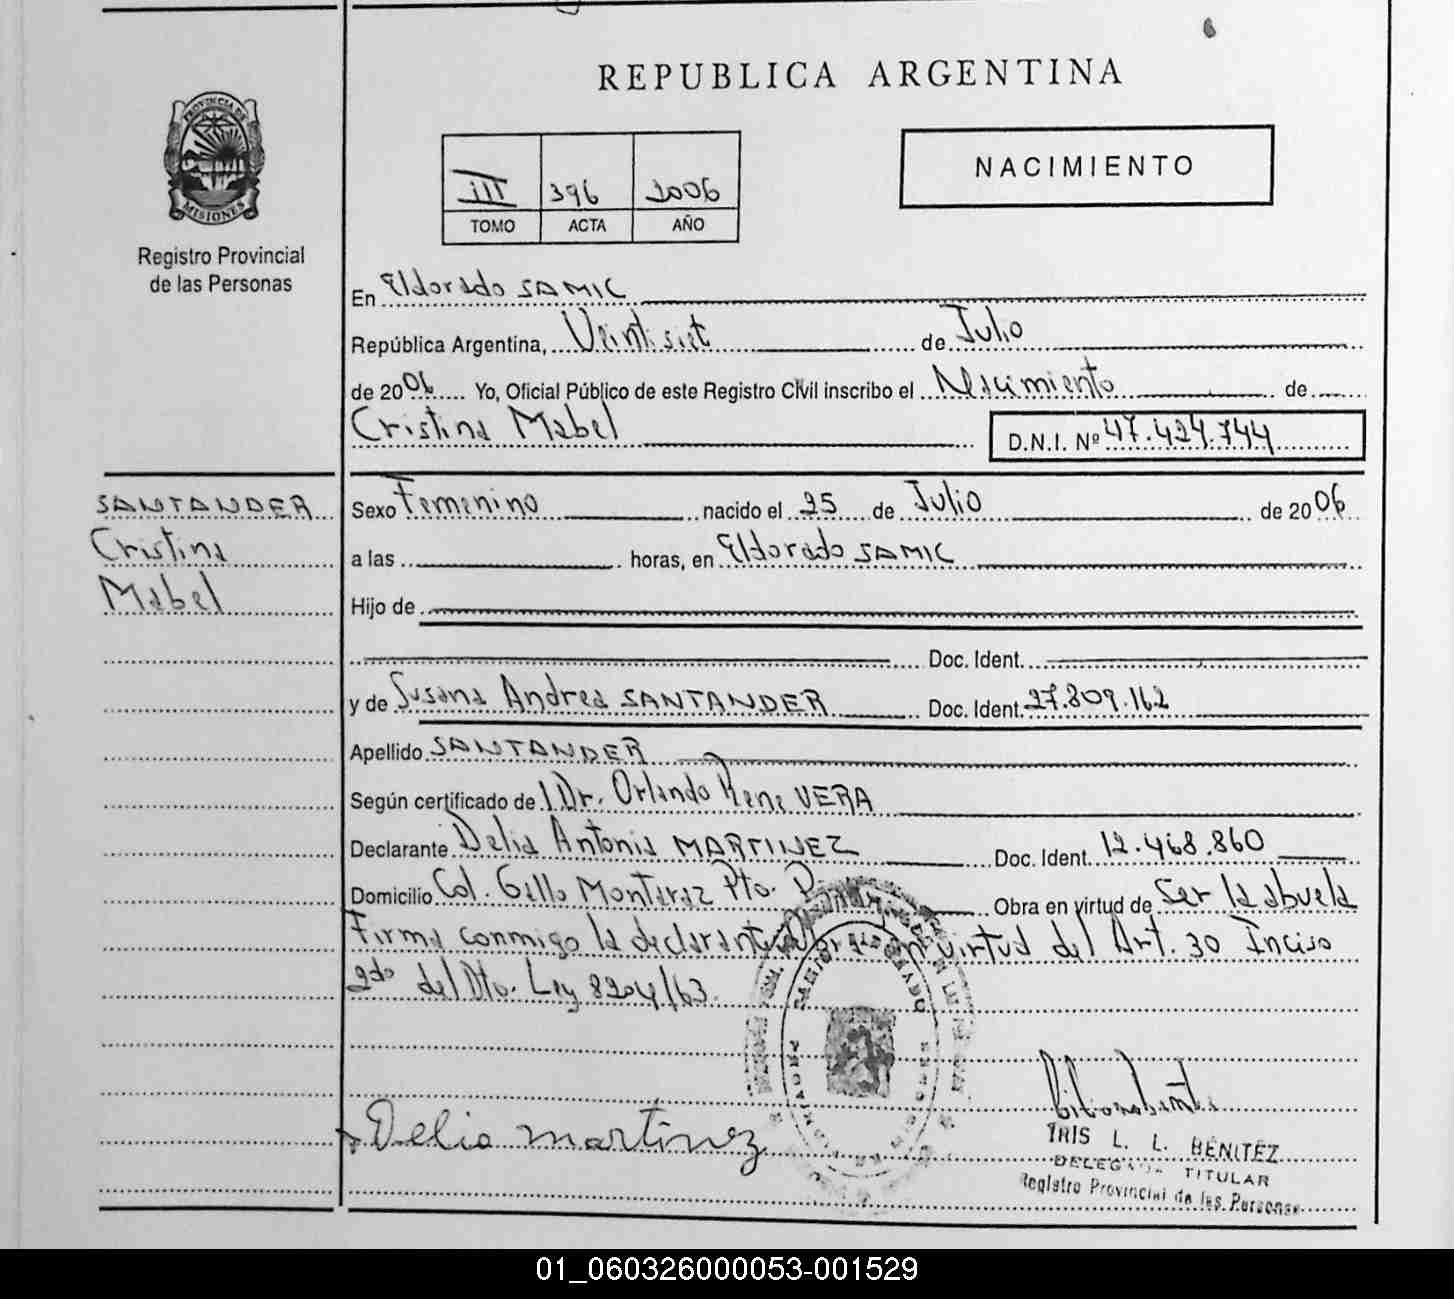 REPUBLICA ARGENTINA
PROVINCIA DE
MISIONES
Registro Provincial
de las Personas
III 396 2006
TOMO ACTA AÑO
NACIMIENTO
En Eldorado SAMIC
República Argentina, Veintisiet de Julio
de 2006 Yo, Oficial Público de este Registro Civil inscribo el Nacimiento de
Cristina Mabel D.N.I. Nº 47.424.744
SANTANDER
Cristina
Mabel
Sexo Femenino nacido el 25 de Julio de 2006
a las horas, en Eldorado SAMIC
Hijo de
Doc. Ident.
y de Susana Andrea SANTANDER Doc. Ident. 27.809.162
Apellido SANTANDER
Según certificado de Dr. Orlando Rene VERA
Declarante Delia Antonia MARTINEZ Doc. Ident. 12.468.860
Domicilio Col. Gallo Monteraz Pto. P. Obra en virtud de Ser la abuela
Firma conmigo la declarante virtud del Art. 30 Inciso
2do del Dto. Ley 8204/63.
Delia martinez
IRIS L. L. BENITEZ
DELEGADA TITULAR
Registro Provincial de las Personas
01_060326000053-001529